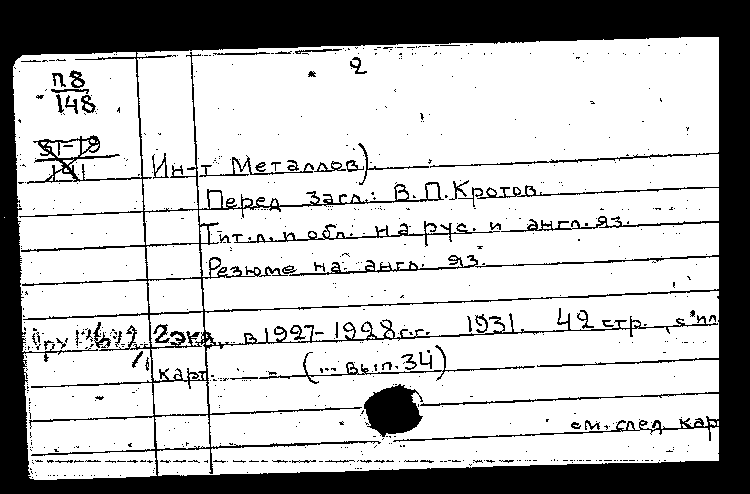 2
П8
148
Ин-т Металлов).
Перед загл.: В.П.Кротов
Тит.л. и обл. на рус. и англ. яз.
Резюме на англ. яз.
2экз. в 1927-1928г.г. 1931. 42 стр., с ил
карт. = (... вып.34)
см. след. кар